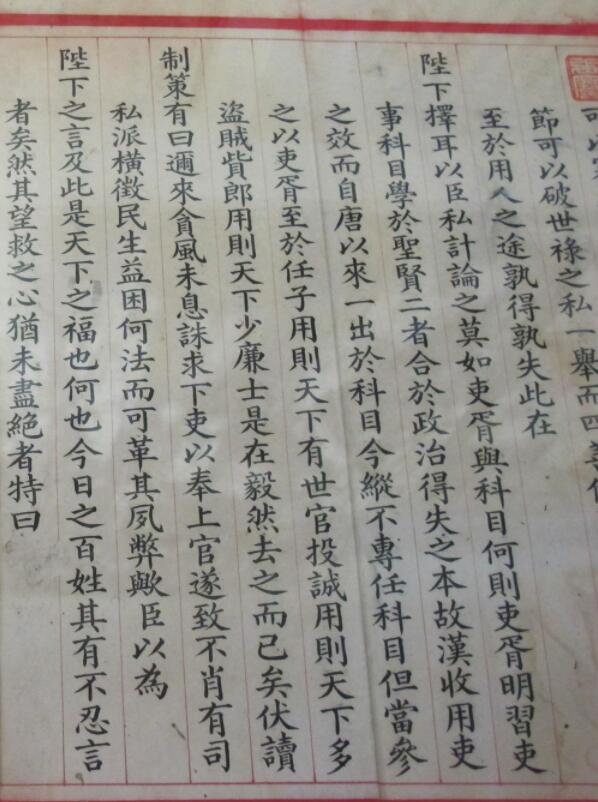 節可以破世祿之私一舉而四善備
至於用人之途孰得孰失此在
陛下擇耳以臣私計論之莫如吏胥與科目何則吏胥明習吏
事科目學於聖賢二者合於政治得失之本故漢收用吏
之效而自唐以來一出於科目今縱不專任科目但當參
之以吏胥至於任子用則天下有世官投誠用則天下多
盜賊貲郎用則天下少廉士是在毅然去之而已矣伏讀
制策有曰邇來貪風未息誅求下吏以奉上官遂致不肖有司
私派橫徵民生益困何法而可革其夙弊歟臣以為
陛下之言及此是天下之福也何也今日之百姓其有不忍言
者矣然其望救之心猶未盡絕者特曰